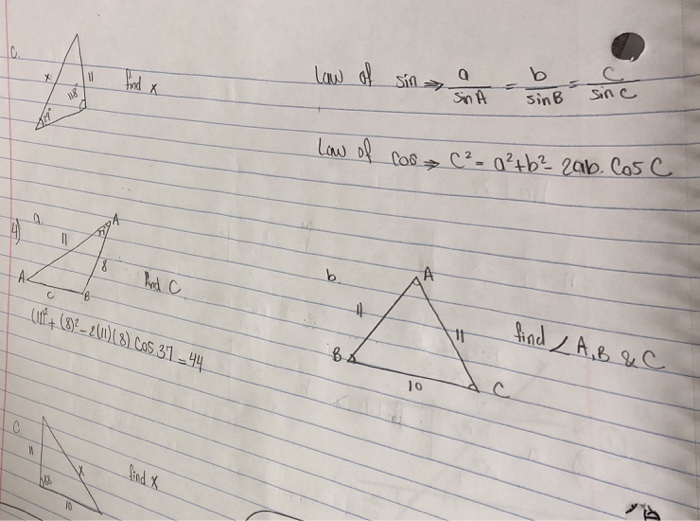 C.
x
11
118°
29°
find x
Law of sin ⇒ a/sin A = b/sin B = c/sin C
Law of cos ⇒ C² = a²+b²- 2ab. Cos C
4) a.
A
11
8
A
C
B
find C
(11)² + (8)² - 2(11)(8) Cos 37 = 44
b.
A
11
11
B
10
C
find ∠A, B & C
C.
11
x
10
find x